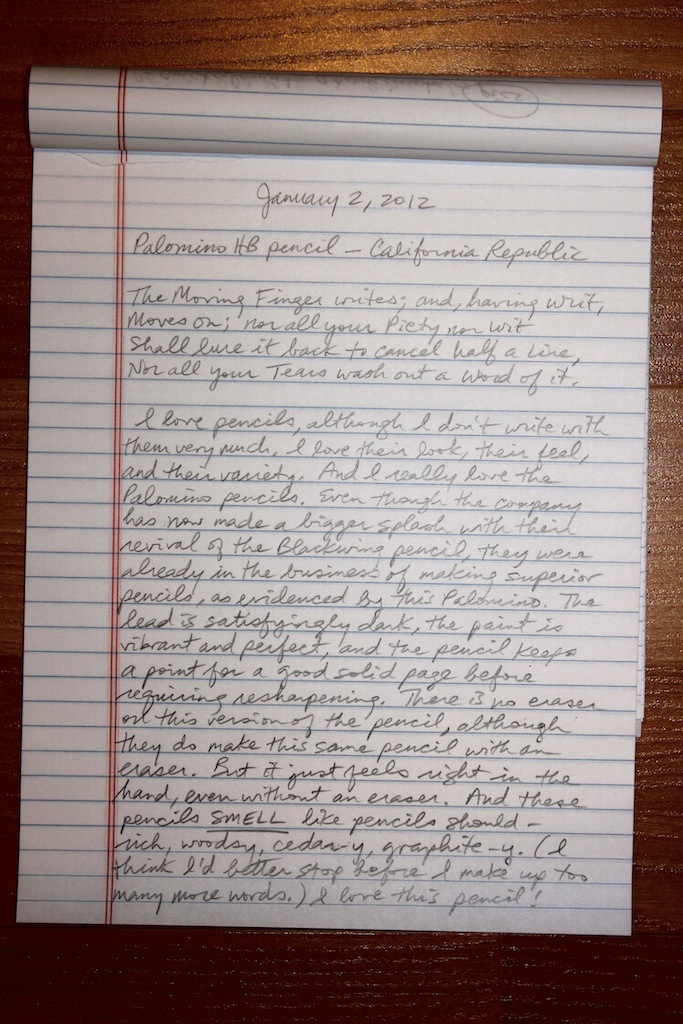 January 2, 2012
Palomino HB pencil – California Republic
The Moving Finger writes; and, having writ,
Moves on; nor all your Piety nor Wit
Shall lure it back to cancel half a Line,
Nor all your Tears wash out a Word of it.
I love pencils, although I don't write with
them very much. I love their look, their feel,
and their variety. And I really love the
Palomino pencils. Even though the company
has now made a bigger splash with their
revival of the Blackwing pencil, they were
already in the business of making superior
pencils, as evidenced by this Palomino. The
lead is satisfyingly dark, the paint is
vibrant and perfect, and the pencil keeps
a point for a good solid page before
requiring resharpening. There is no eraser
on this version of the pencil, although
they do make this same pencil with an
eraser. But it just feels right in the
hand, even without an eraser. And these
pencils SMELL like pencils should –
rich, woodsy, cedar-y, graphite-y. (I
think I'd better stop before I make up too
many more words.) I love this pencil!